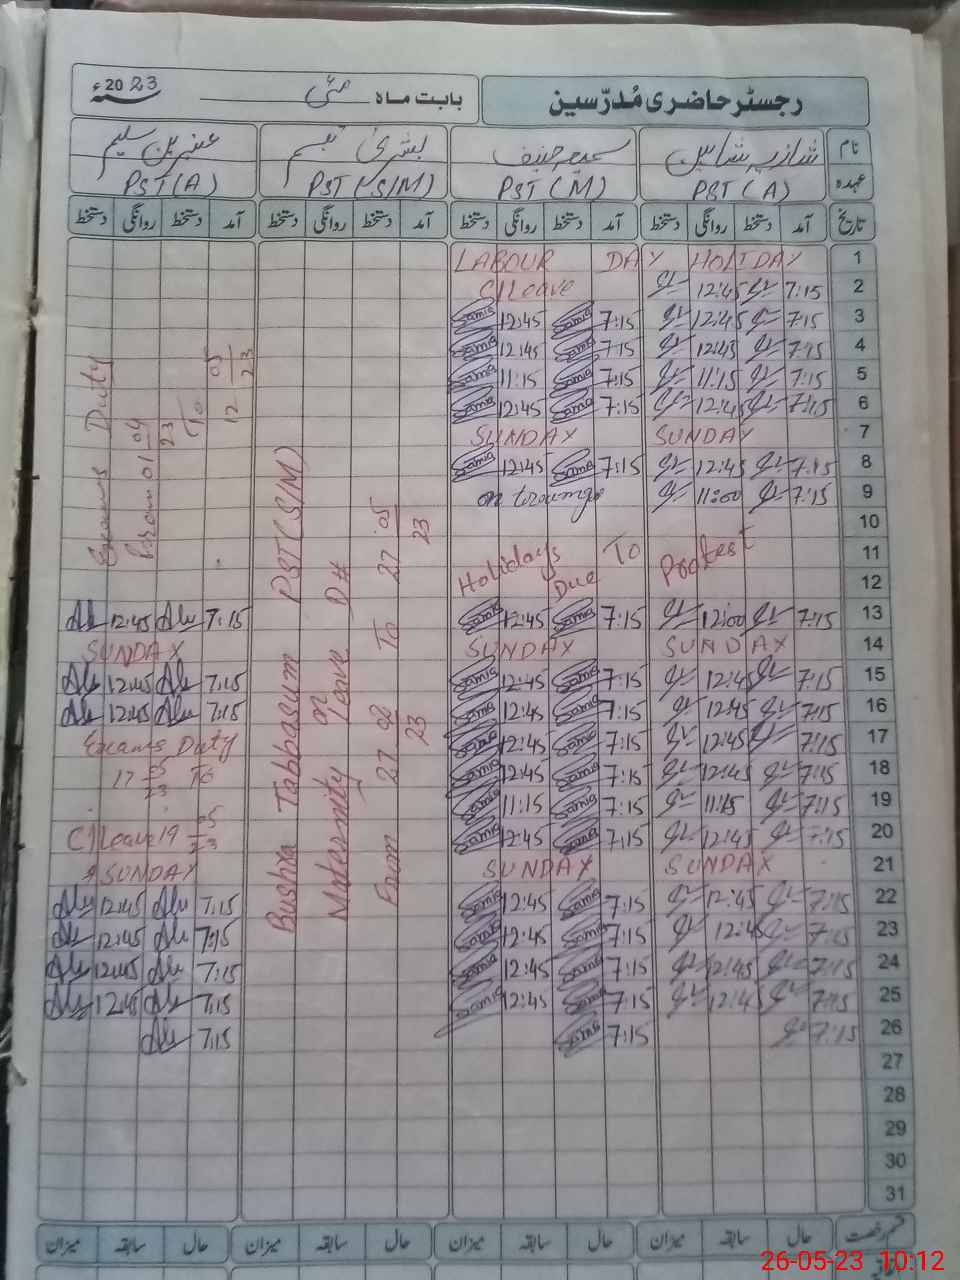 رجسٹر حاضری مُدرّسین
بابت ماہ مئی 2023ء
نام شازیہ شاہین سمیعہ حنیف بشریٰ تبسم عنبرین سلیم
عہدہ PST (A) PST (M) PST (S/M) PST (A)
تاریخ آمد دستخط روانگی دستخط آمد دستخط روانگی دستخط آمد دستخط روانگی دستخط آمد دستخط روانگی دستخط
1 LABOUR DAY HOLIDAY
2 7:15 12:45 C/Leave
3 7:15 12:45 7:15 Samia 12:45 Samia
4 7:15 12:45 7:15 Samia 12:45 Samia
5 7:15 11:15 7:15 Samia 11:15 Samia
6 7:15 12:45 7:15 Samia 12:45 Samia
7 SUNDAY SUNDAY
8 7:15 12:45 7:15 Samia 12:45 Samia
9 7:15 11:00 on
10
11 Holidays Due To Protest
12
13 7:15 12:00 7:15 Samia 12:45 Samia 7:15 12:45
14 SUNDAY SUNDAY SUNDAY
15 7:15 12:45 7:15 Samia 12:45 Samia 7:15 12:45
16 7:15 12:45 7:15 Samia 12:45 Samia 7:15 12:45
17 7:15 12:45 7:15 Samia 12:45 Samia Exams Duty
18 7:15 12:45 7:15 Samia 12:45 Samia 17 05/23 To
19 7:15 11:15 7:15 Samia 11:15 Samia
20 7:15 12:45 7:15 Samia 12:45 Samia C/Leave 19 05/23
21 SUNDAY SUNDAY SUNDAY
22 7:15 12:45 7:15 Samia 12:45 Samia 7:15 12:45
23 7:15 12:45 7:15 Samia 12:45 Samia 7:15 12:45
24 7:15 12:45 7:15 Samia 12:45 Samia 7:15 12:45
25 7:15 12:45 7:15 Samia 12:45 Samia 7:15 12:45
26 7:15 7:15 Samia 7:15
27
28
29
30
31
Bushra Tabbasum PST (S/M)
Maternity Leave
From 27 02/23 To 27 05/23
Exams Duty
From 01 04/23
To
12 05/23
قسم رخصت حال سابقہ میزان حال سابقہ میزان حال سابقہ میزان حال سابقہ میزان
26-05-23 10:12